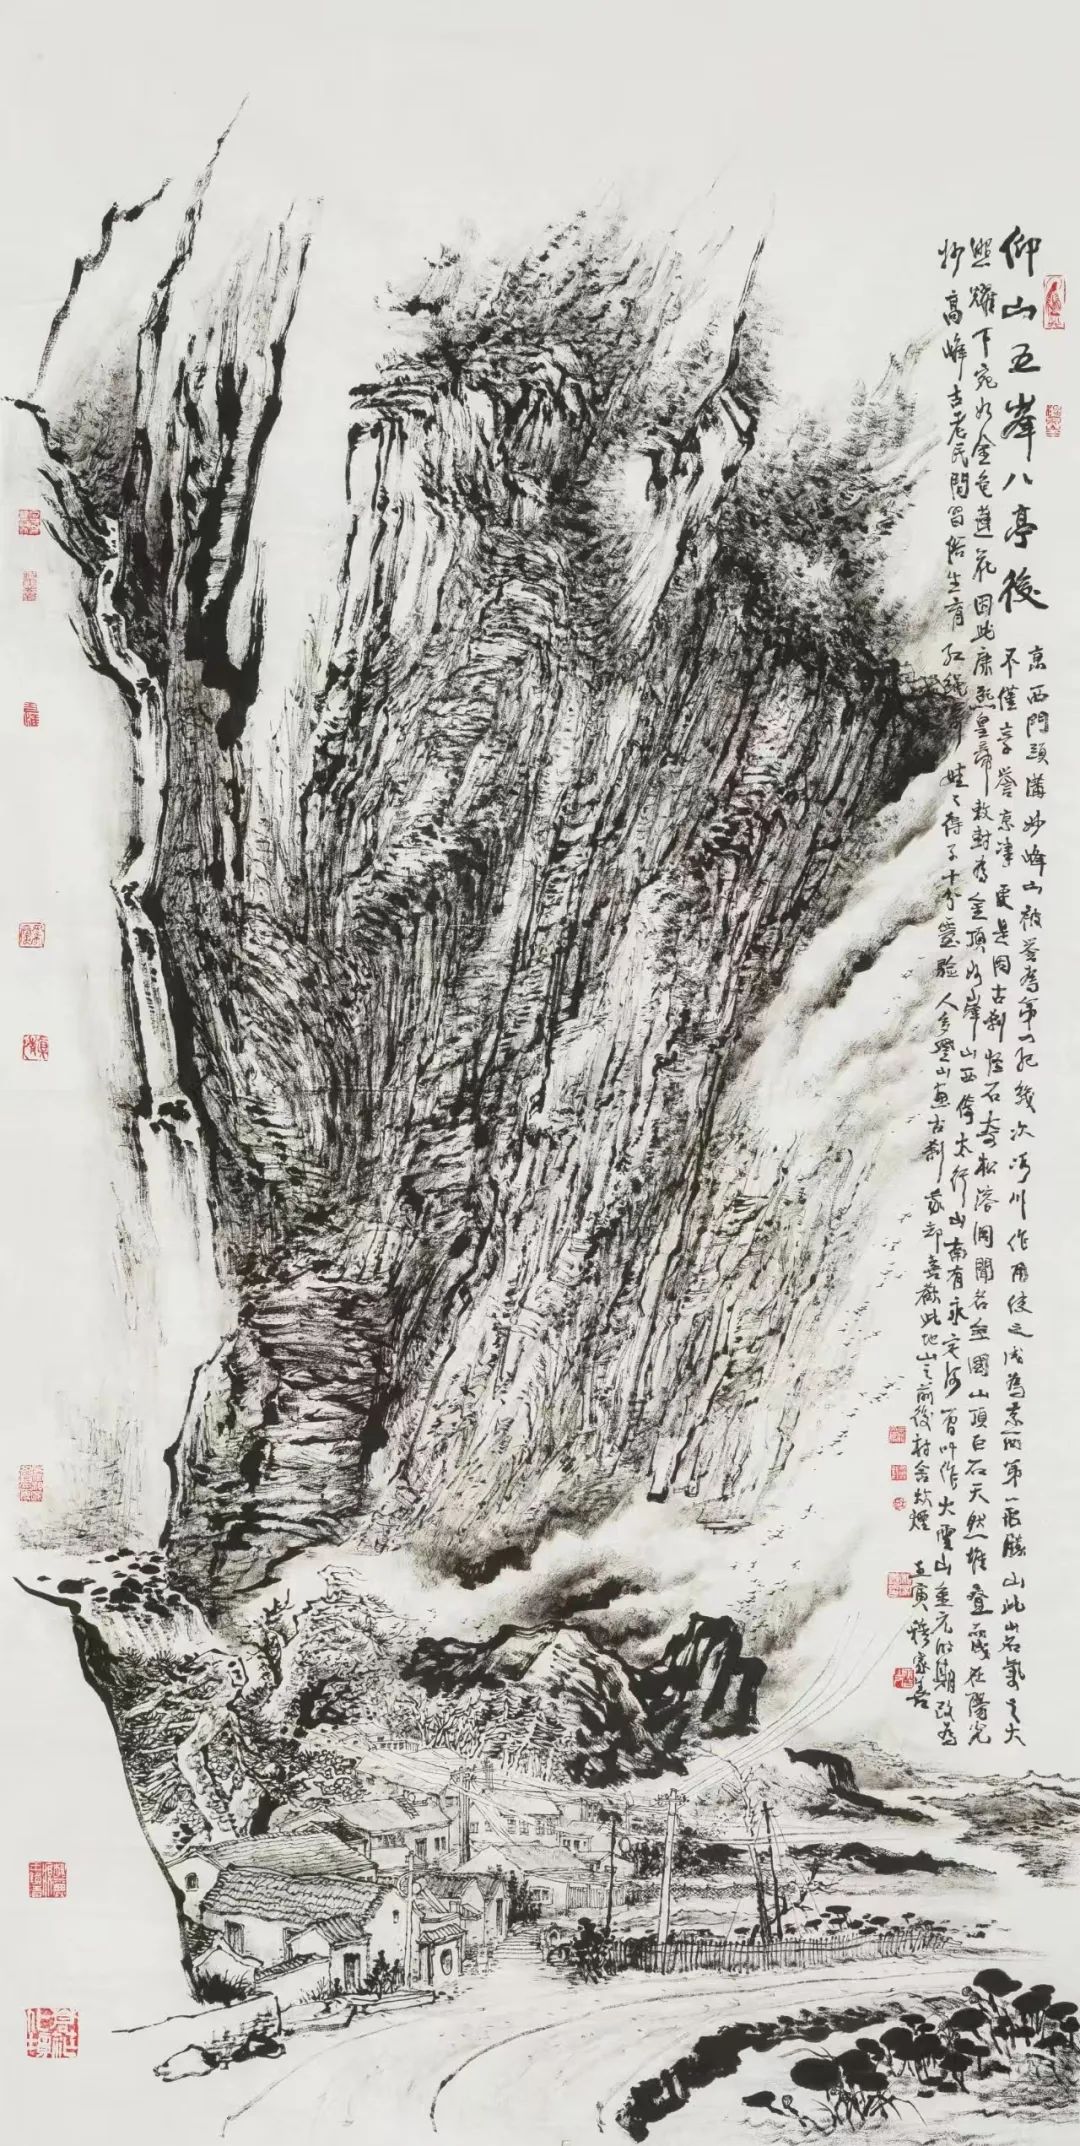 仰山五峰八亭後
京西門頭溝妙峰山被譽為第四紀幾次冰川作用使之成為京西第一最勝山此岩氣之大
不僅享譽京津更是因古刹怪石奇松溶洞聞名全國山頂巨石天然堆疊處在陽光
照耀下宛如金色蓮花因此康熙皇帝敕封為金頂妙峰山西倚太行山南有永定河曾叫作大雲山至元明期改為
妙高峰古老民間習俗生育紅繩帶娃娃得子十分靈驗人多登山惠古刹家却喜歡此地山之前後村舍炊煙
壬寅穆家善